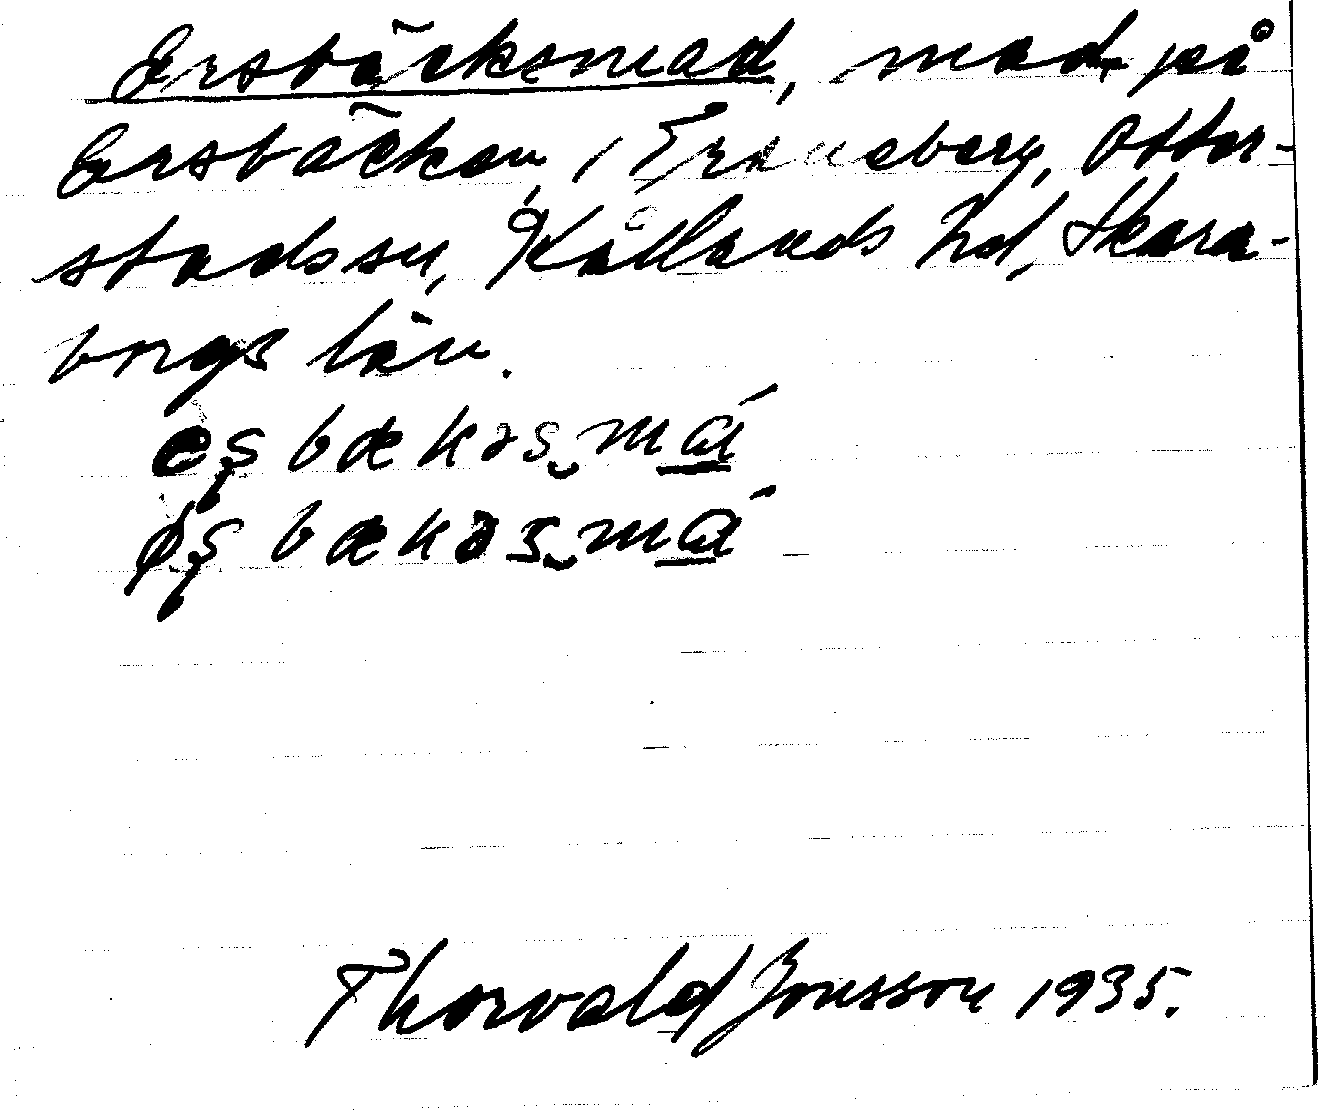 Ersbäcksmad, mad på
Ersbäcken, i Traneberg, Otter-
stads sn, Kållands hd, Skara-
borgs län.
eş bækəs‿má
øş bækəs‿má
Thorvald Jonsson 1935.